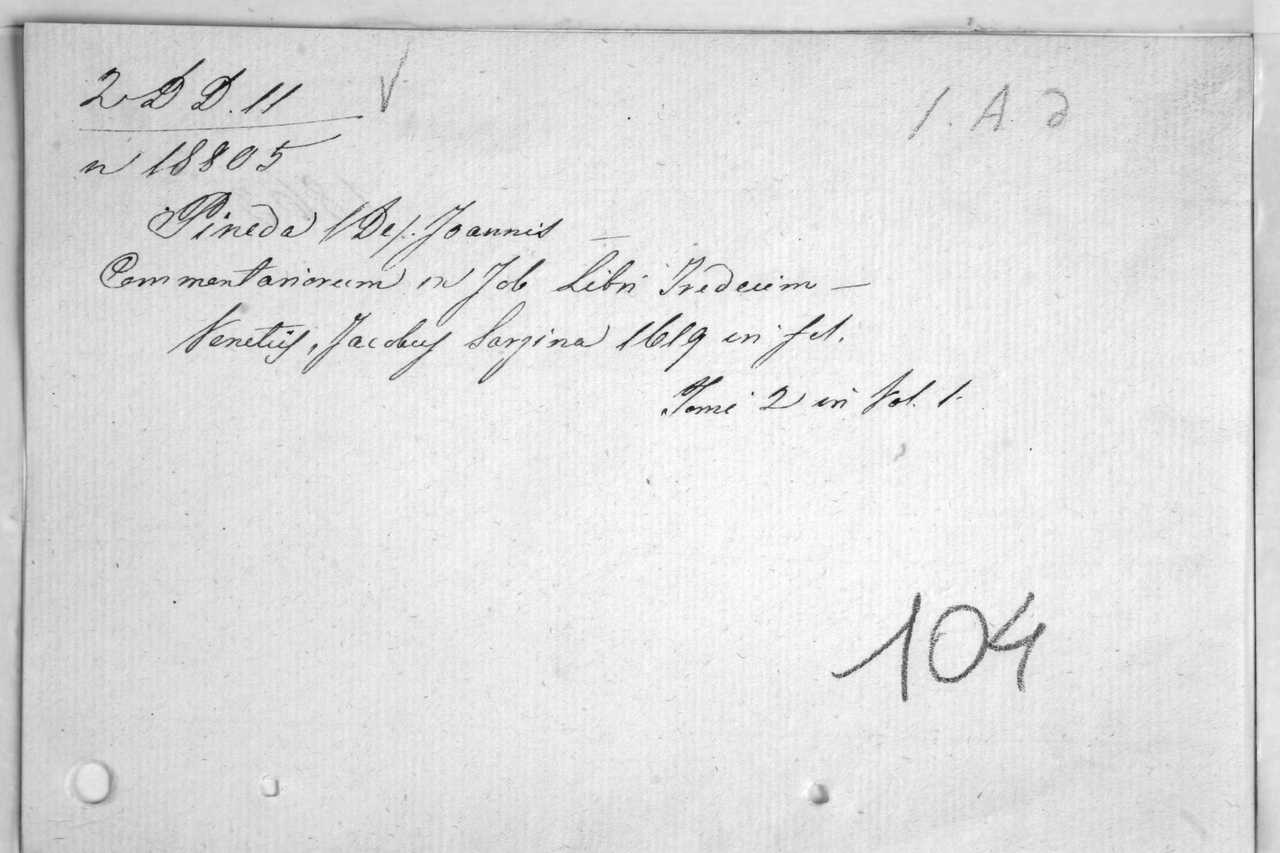 2 D D. 11
1. A. d
n 18805
Pineda (De). Joannis —
Commentariorum in Job Libri Tredecim —
Venetiis, Jacobus Sarzina 1619 in fol.
Tomi 2 in Vol. 1.
104